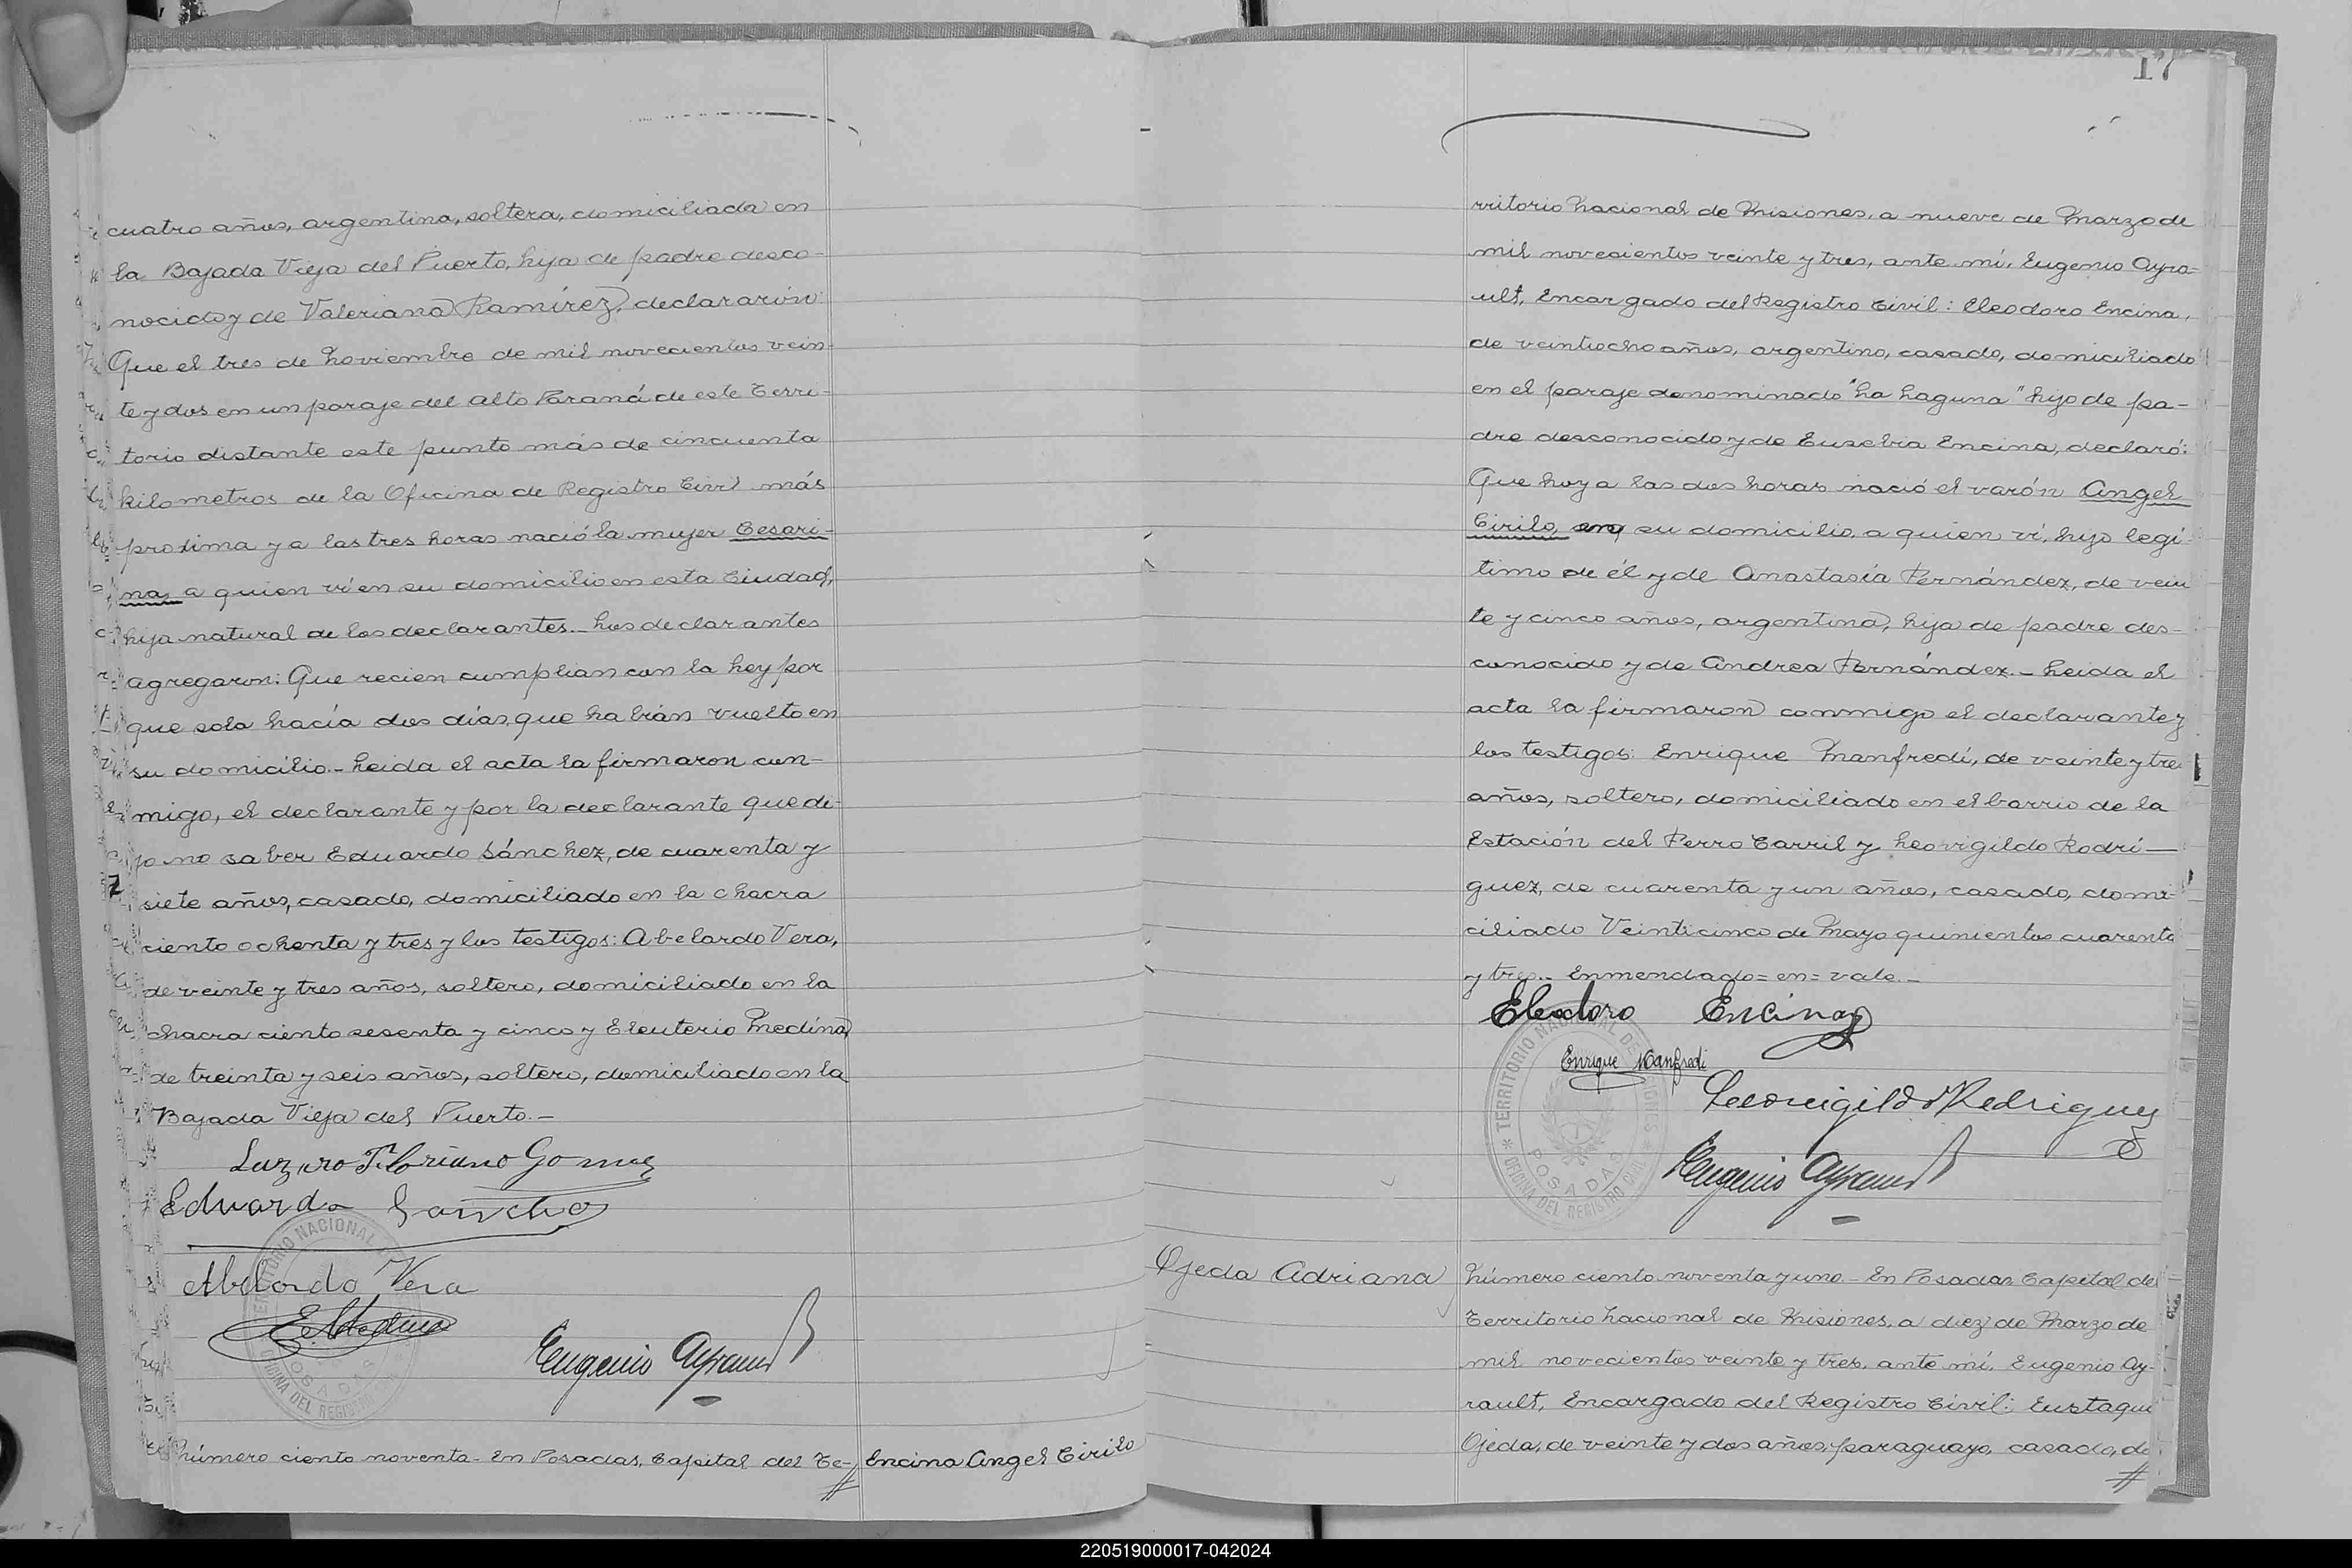 cuatro años, argentina, soltera, domiciliada en
la Bajada Vieja del Puerto, hija de padre desco-
nocido y de Valeriana Ramírez, declararón:
Que el tres de Noviembre de mil novecientos vein-
te y dos en un paraje del Alto Paraná de este Terri-
torio distante este punto más de cincuenta
kilometros de la Oficina de Registro Civil más
proxima y a las tres horas nació la mujer Cesari-
na, a quien ví en su domicilio en esta Ciudad,
hija natural de los declarantes.- Los declarantes
agregaron: Que recien cumplian con la Ley por
que solo hacía dos días que habían vuelto en
su domicilio.- Leida el acta la firmaron con-
migo, el declarante y por la declarante que di-
jo no saber Eduardo Sánchez, de cuarenta y
siete años, casado, domiciliado en la chacra
ciento ochenta y tres y los testigos: Abelardo Vera,
de veinte y tres años, soltero, domiciliado en la
chacra ciento sesenta y cinco y Eleuterio Medina,
de treinta y seis años, soltero, domiciliado en la
Bajada Vieja del Puerto.-
Lazaro Floriano Gomez
Eduardo Sanchez
Abelardo Vera
E. Medina
Eugenio Ayrault
TERRITORIO NACIONAL
OFICINA DEL REGISTRO
POSADAS
Número ciento noventa- En Posadas, Capital del Te-//
Encina Angel Cirilo
17
rritorio Nacional de Misiones, a nueve de Marzo de
mil novecientos veinte y tres, ante mí, Eugenio Ayra-
ult, Encargado del Registro Civil: Eleodoro Encina,
de veintiocho años, argentino, casado, domiciliado
en el paraje denominado "La Laguna" hijo de pa-
dre desconocido y de Eusebia Encina, declaró:
Que hoy a las dos horas nació el varón Angel
Cirilo, en su domicilio, a quien ví, hijo legí-
timo de él y de Anastasía Fernández, de vein
te y cinco años, argentina, hija de padre des-
conocido y de Andrea Fernández.- Leida el
acta la firmaron conmigo el declarante y
los testigos: Enrique Manfredi, de veinte y tre
años, soltero, domiciliado en el barrio de la
Estación del Ferro Carril y Leovigildo Rodrí-
guez, de cuarenta y un años, casado, domi-
ciliado Veinticinco de Mayo quinientos cuarenta
y tres.- Enmendado=en=vale.-
Eleodoro Encina
Enrique Manfredi
Leovigildo Rodriguez
Eugenio Ayrault
TERRITORIO NACIONAL DE MISIONES
OFICINA DEL REGISTRO CIVIL
POSADAS
Ojeda Adriana
Número ciento noventa y uno- En Posadas Capital del
Territorio Nacional de Misiones, a diez de Marzo de
mil novecientos veinte y tres, ante mí, Eugenio Ay-
rault, Encargado del Registro Civil: Eustaqui
Ojeda, de veinte y dos años, paraguayo, casado, do
//
220519000017-042024